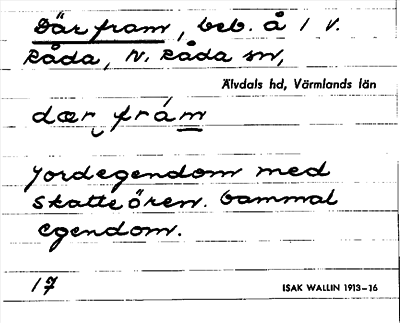 Där fram, beb. å 1 V.
Råda, N. Råda sn,
Älvdals hd, Värmlands län
dær frám
Jordegendom med
skatteören. Gammal
egendom.
17
ISAK WALLIN 1913–16